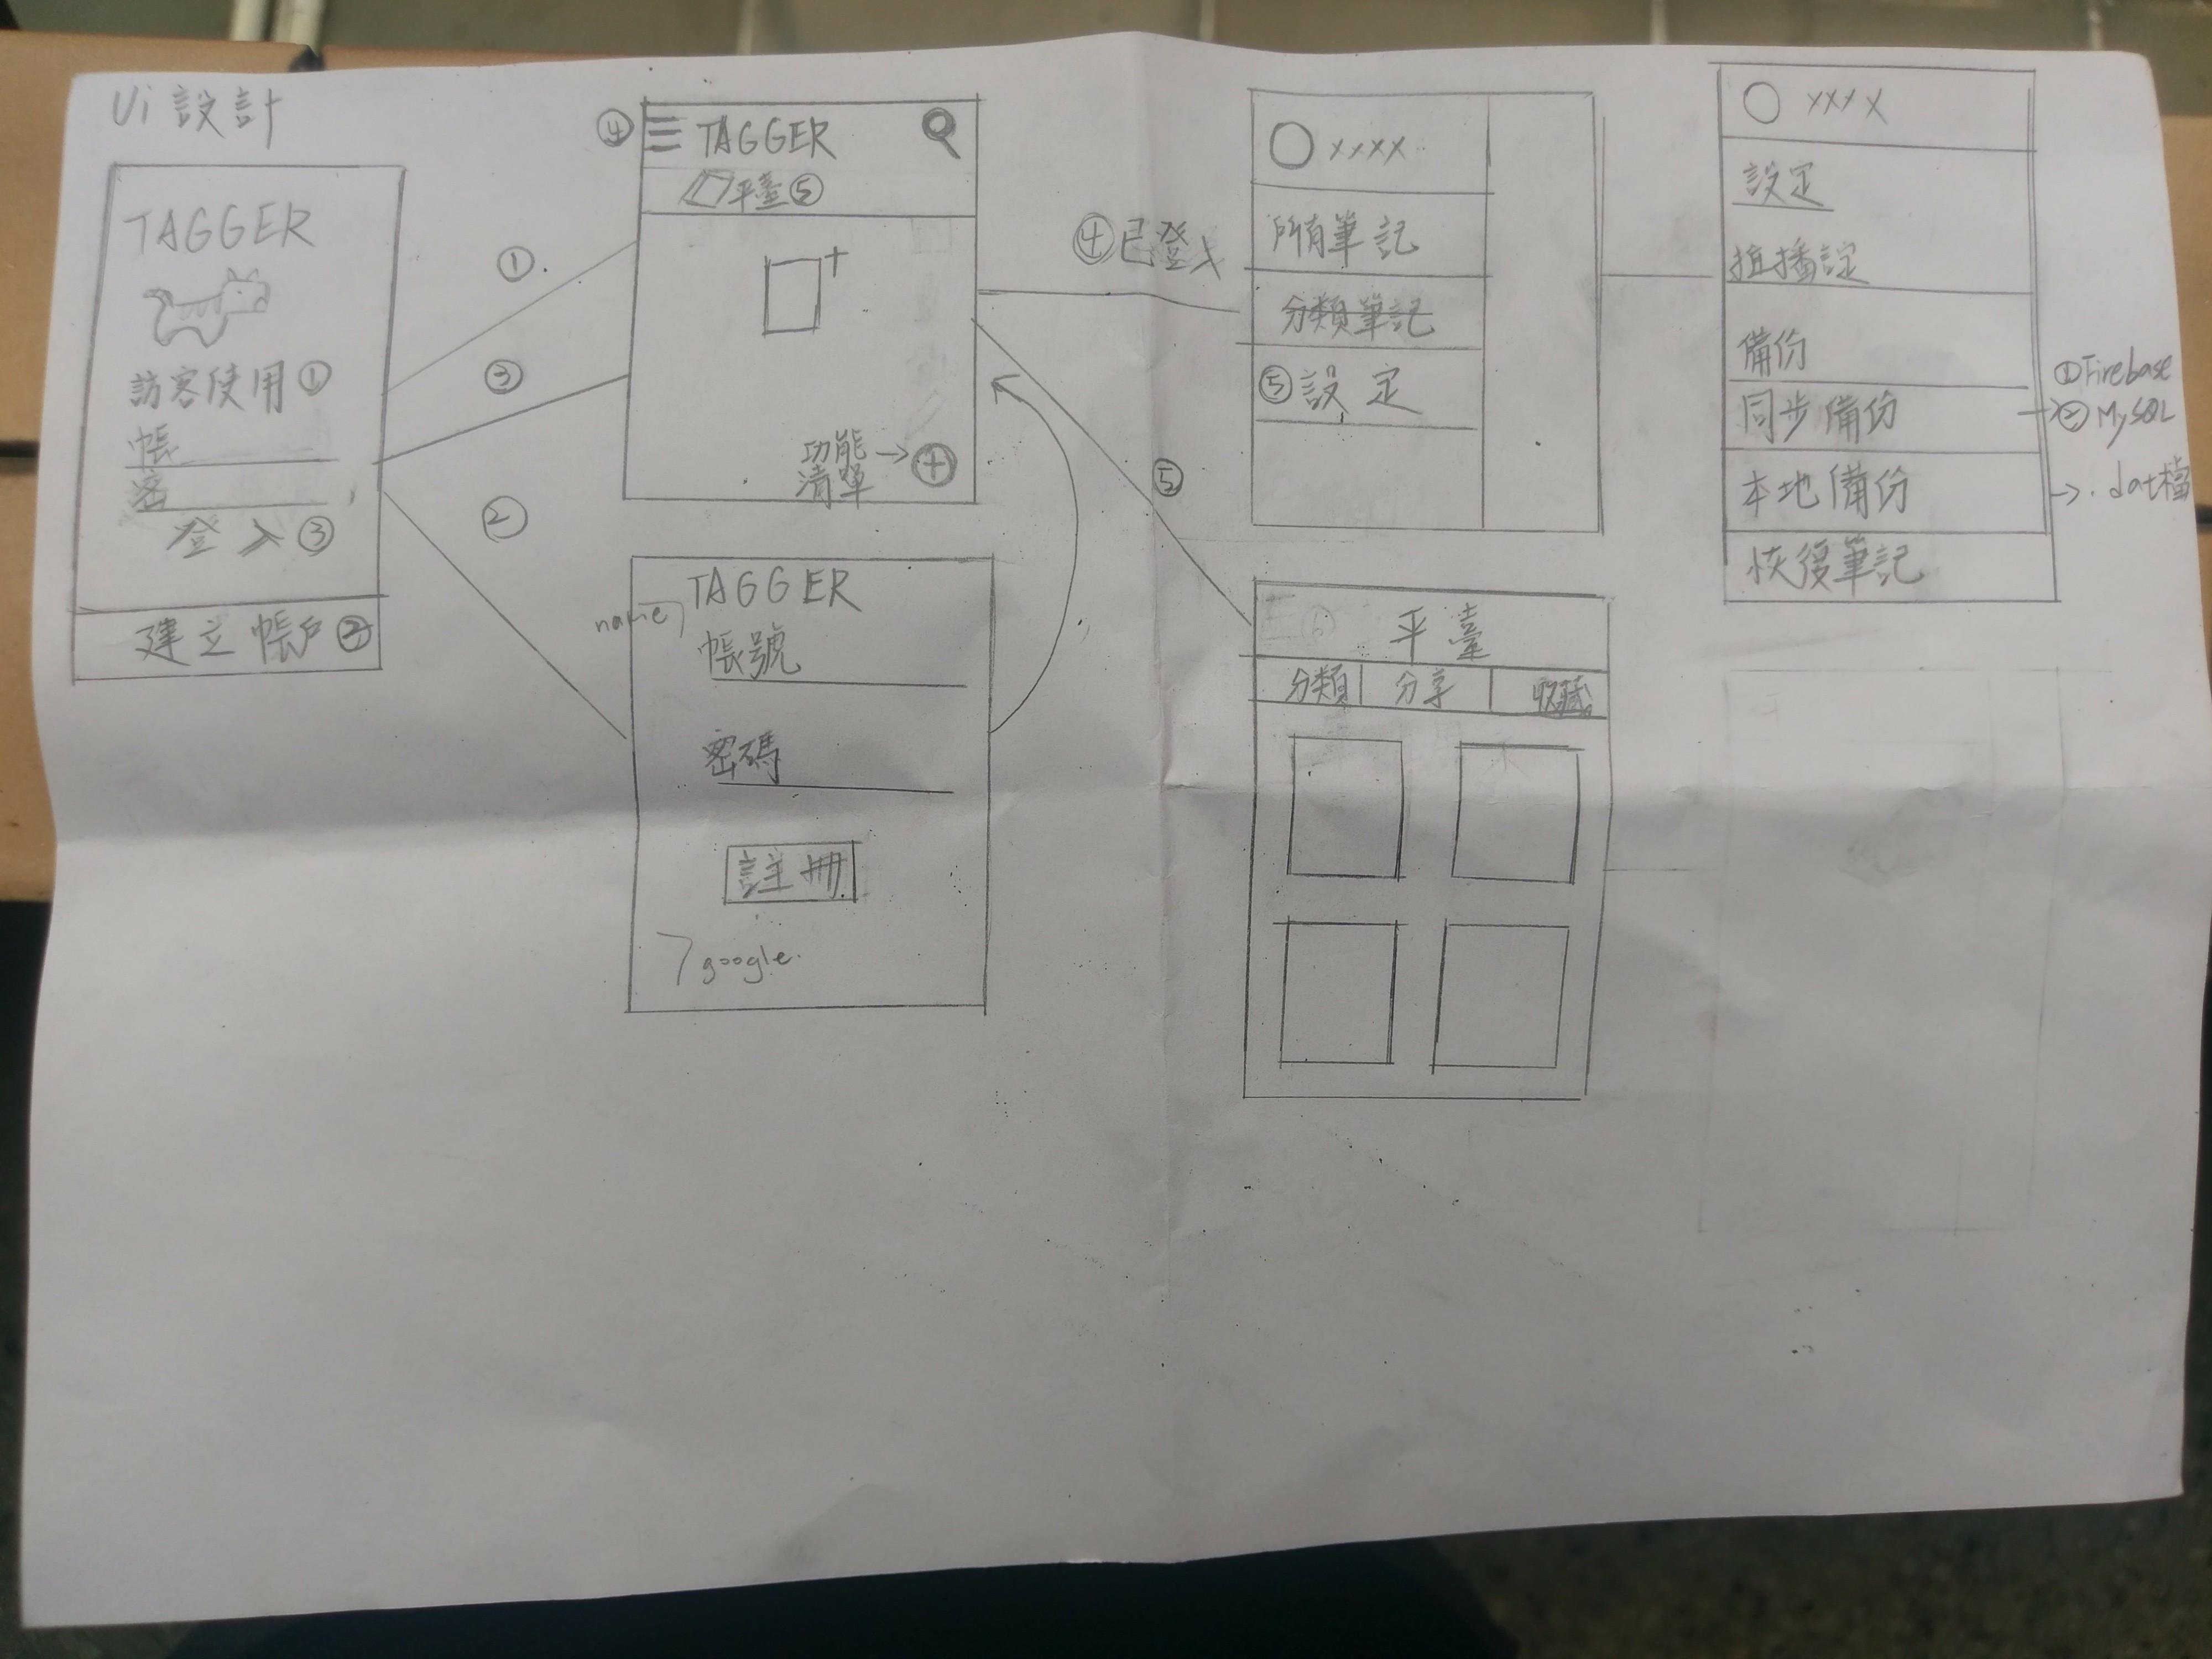 Ui 設計
TAGGER
訪客使用①
帳
密
登入③
建立帳戶②
①
③
②
④
TAGGER
平臺⑤
功能
清單→
name
TAGGER
帳號
密碼
註冊
google.
④已登入
⑤
xxxx
所有筆記
分類筆記
⑤設定
平臺
分類
分享
收藏
xxxx
設定
備份
同步備份
本地備份
恢復筆記
①Firebase
→② MySQL
→.dat檔